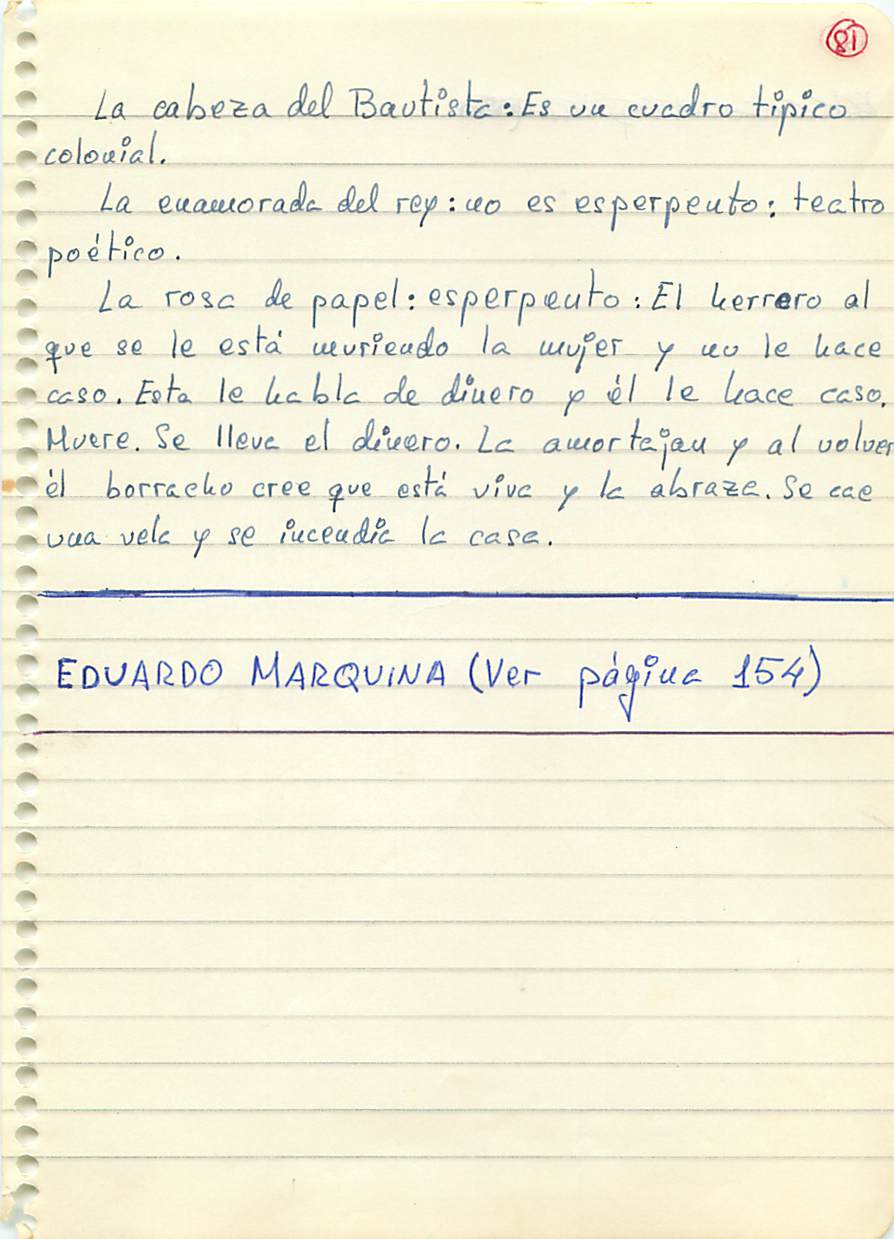 81
La cabeza del Bautista: Es un cuadro típico
colonial.
La enamorada del rey: no es esperpento: teatro
poético.
La rosa de papel: esperpento: El herrero al
que se le está muriendo la mujer y no le hace
caso. Esta le habla de dinero y él le hace caso.
Muere. Se lleva el dinero. La amortajan y al volver
él borracho cree que está viva y la abraza. Se cae
una vela y se incendia la casa.
EDUARDO MARQUINA (Ver página 154)